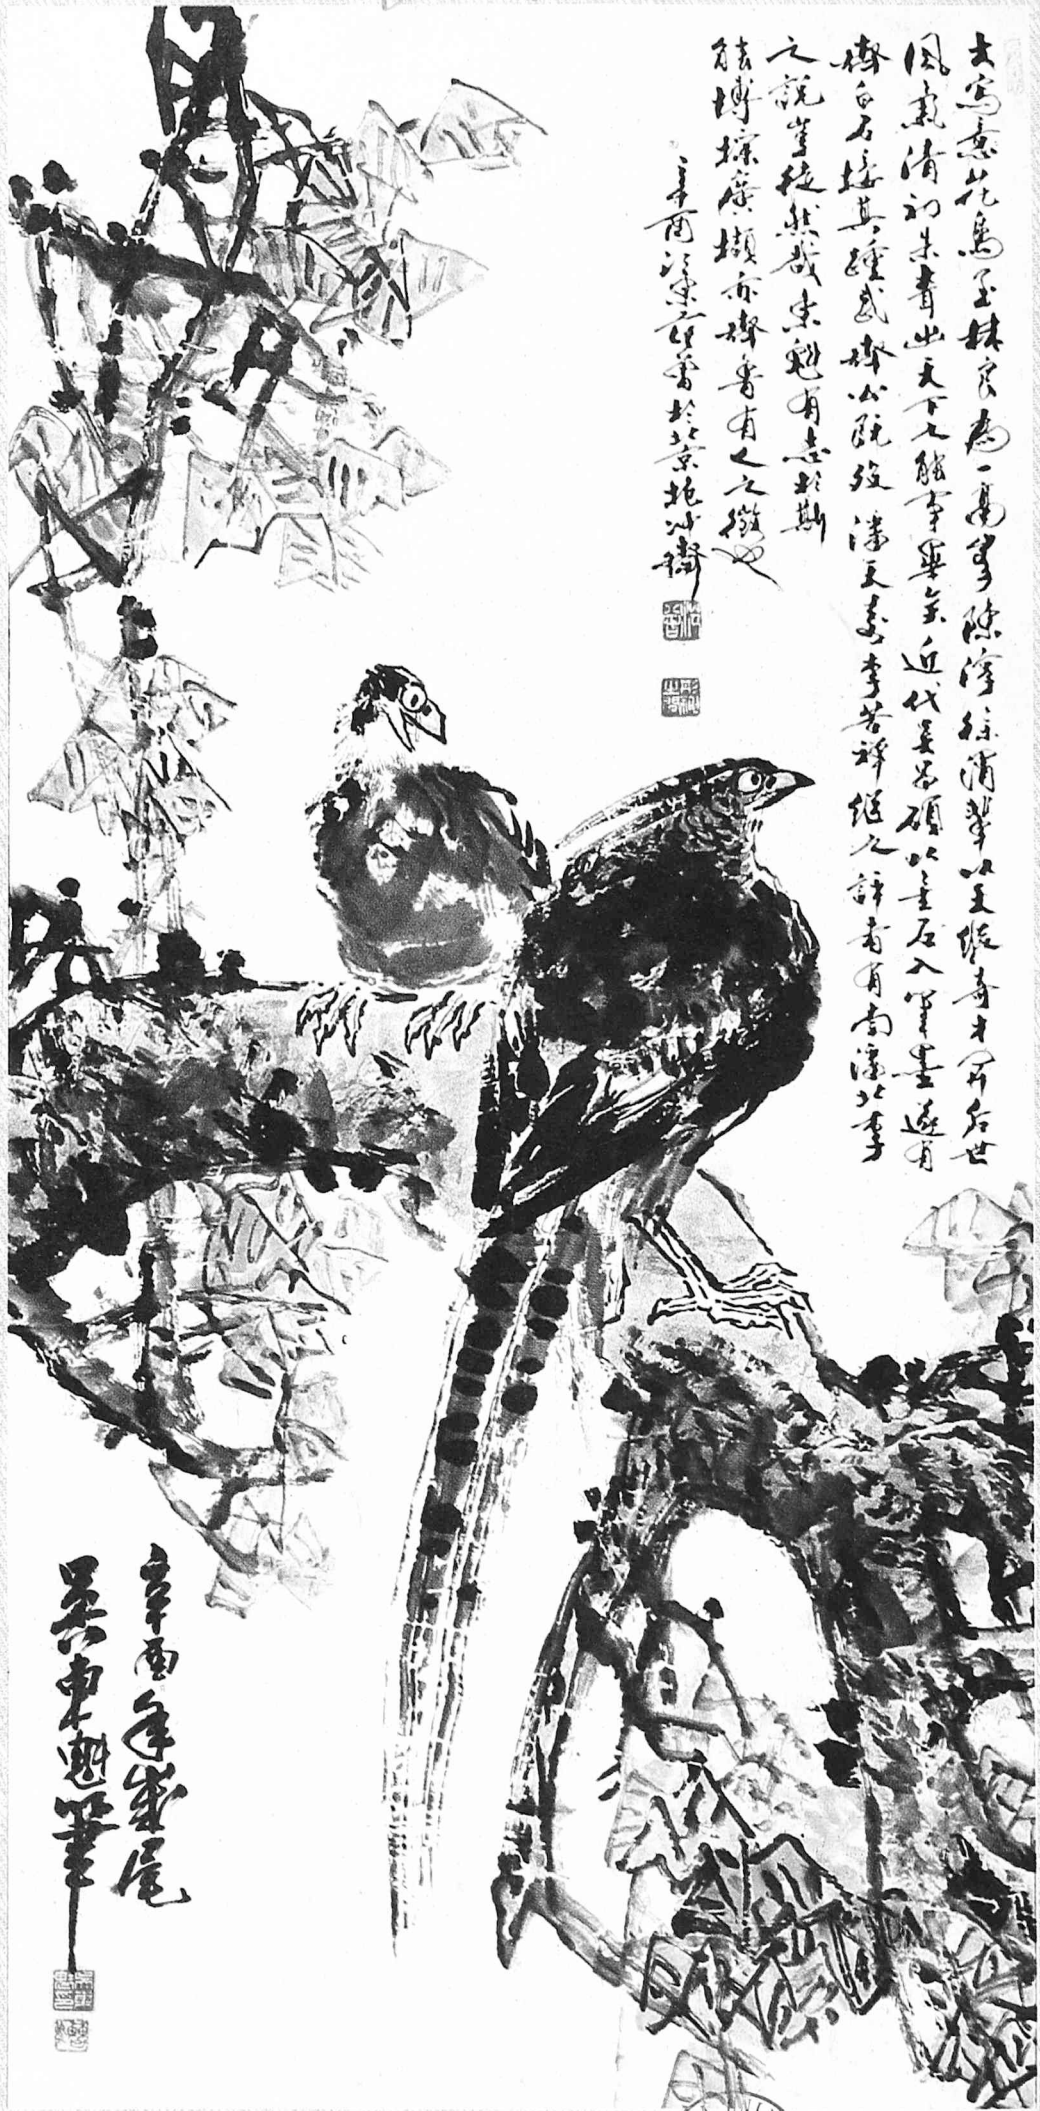 大寫意花鳥至林良為一高峯陳淳徐渭輩以天縱奇才開后世
風氣清初朱耷出天下之能事畢矣近代吴昌碩以金石入筆墨遂有
齊白石接其踵武齊公既殁潘天壽李苦禅继之評者有南潘北李
之說豈徒然哉東魁有志於斯
能博採廣擷亦齊魯有人之徵也
辛酉江東范曾於北京抱冲齋
辛酉年歲尾
吴東魁筆